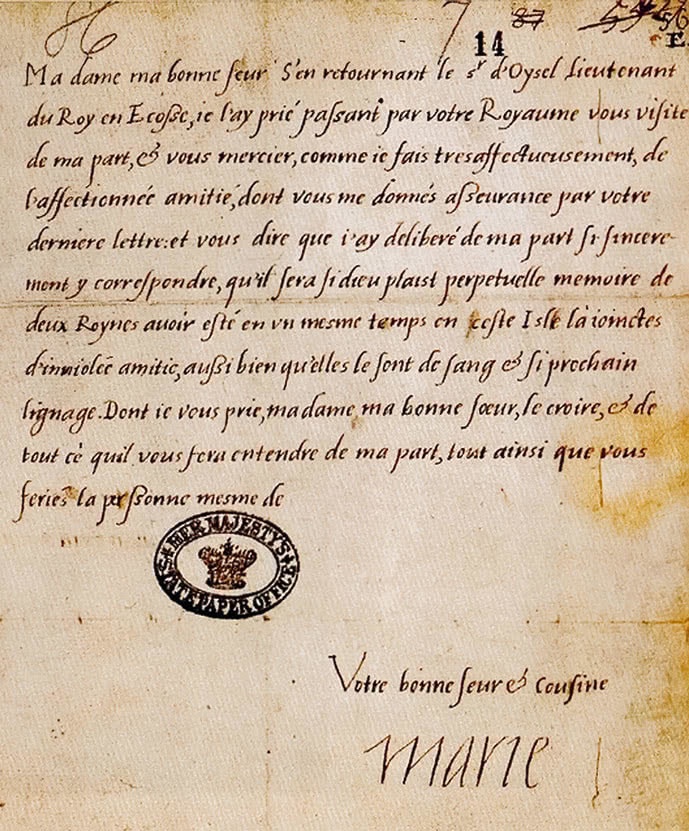 7 87
14
56
E.
Ma dame ma bonne seur S'en retournant le sr d'Oysel Lieutenant
du Roy en Ecosse, ie l'ay prié passant par votre Royaume vous visite
de ma part, & vous mercier, comme ie fais tresaffectueusement, de
l'affectionneé amitié, dont vous me donnés asseurance par votre
derniere lettre: et vous dire que i'ay deliberé de ma part si sincere-
ment y correspondre, qu'il sera si dieu plaist perpetuelle memoire de
deux Roynes auoir esté en vn mesme temps en ceste Isle là ioinctes
d'inuioleé amitie, aussi bien qu'elles le sont de sang & si prochain
lignage. Dont ie vous prie, ma dame, ma bonne sœur, le croire, & de
tout cè quil vous fera entendre de ma part, tout ainsi que vous
feries la personne mesme de
HER MAJESTY'S
STATE PAPER OFFICE
Votre bonne seur & cousine
Marie